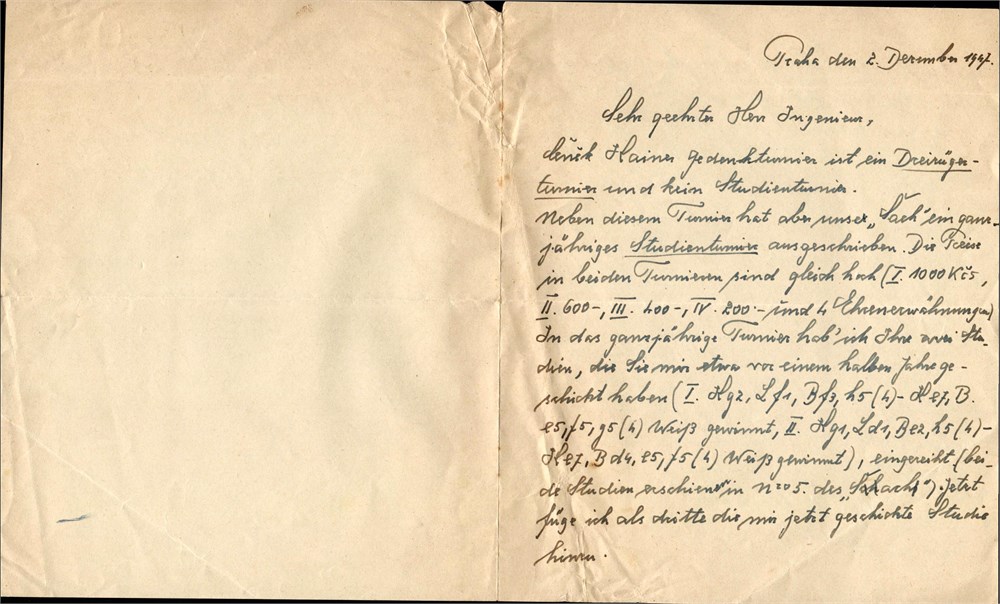 Praha den 2. Dezember 1947.
Sehr geehrter Herr Ingenieur,
Hainer Gedenkturnier ist ein Dreizüger-
turnier und kein Studienturnier.
Neben diesem Turnier hat aber unser „Šach" ein ganz-
jähriges Studienturnier ausgeschrieben. Die Preise
in beiden Turnieren sind gleich hoch (I. 1000 Kčs,
II. 600-, III. 400-, IV. 200.- und 4 Ehrenerwähnungen)
In das ganzjährige Turnier hab' ich Ihre zwei Stu-
dien, die Sie mir etwa vor einem halben Jahre ge-
schickt haben (I. Kg2, Lf1, Bf3, h5 (4) - Ke7, B.
e5, f5, g5 (4) Weiß gewinnt, II. Kg1, Ld1, Be2, h5 (4) -
Ke7, Bd4, e5, f5 (4) Weiß gewinnt), eingereiht (bei-
de Studien erschienen in No 5. des „Šach"). Jetzt
füge ich als dritte die mir jetzt geschickte Studie
hinzu.